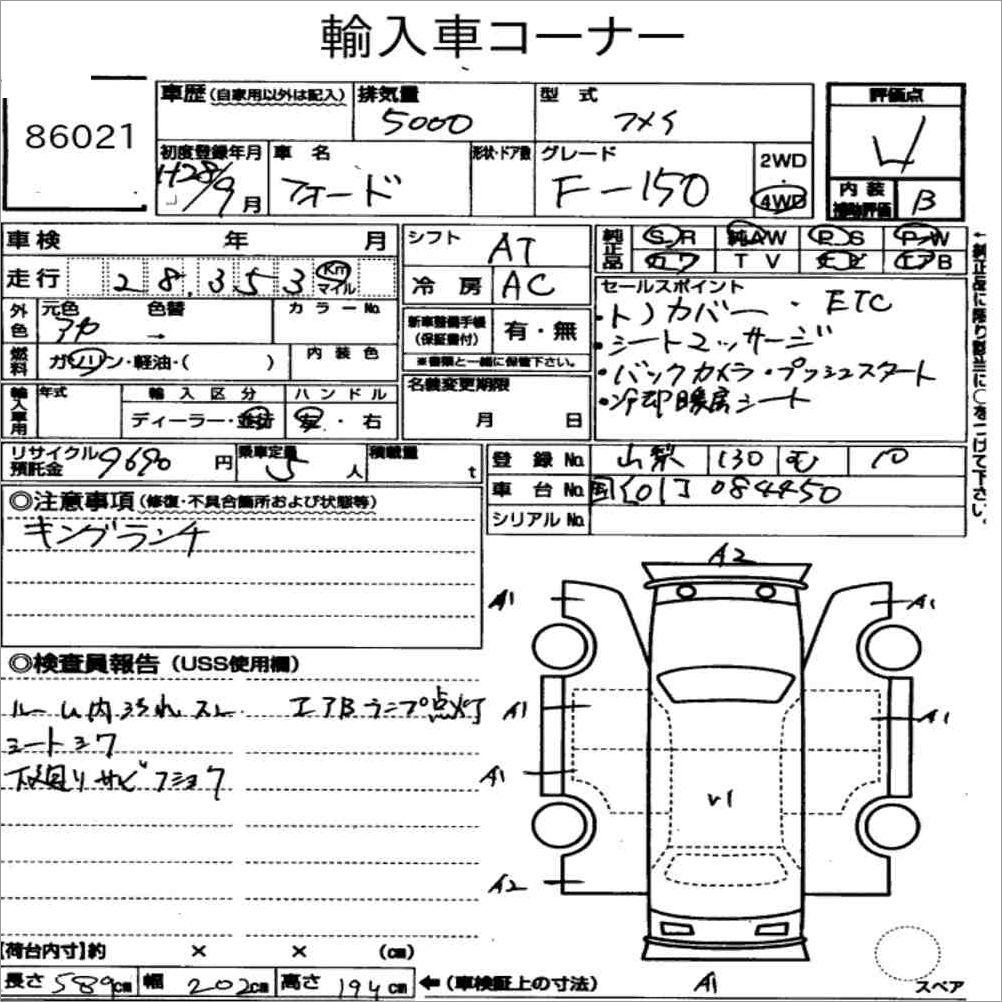 輸入車コーナー
86021
車歴 (自家用以外は記入) 排気量 5000 型式 フメイ
評価点 4
初度登録年月 H28/9月 車名 フォード 形状・ドア数 グレード F-150 2WD・4WD
内装補助評価 B
車検 年 月
シフト AT
純正品 SR 純AW PS PW
カワ TV ナビ エアB
走行 28,353 Km マイル
冷房 AC
外色 元色 アカ 色替 → カラーNo.
セールスポイント
・トノカバー ・ETC
・シートマッサージ
・バックカメラ・プッシュスタート
・冷却暖房シート
新車整備手帳(保証書付) 有・無
※書類と一緒に保管下さい。
燃料 ガソリン・軽油・( ) 内装色
名義変更期限 月 日
輸入車用 年式 輸入区分 ディーラー・並行 ハンドル 左・右
←純正品に限り該当に○をつけて下さい。
リサイクル預託金 9690円 乗車定員 5人 積載量 t
登録No. 山梨 130 む 10
車台No. 084450
シリアルNo.
◎注意事項 (修復・不具合箇所および状態等)
キングランチ
◎検査員報告 (USS使用欄)
ルーム内汚れ、スレ エアBランプ点灯
シートシワ
下廻りサビフショク
A2
A1 A1
A1 A1
A1
V1
A2
A1
スペア
【荷台内寸】約 × × (cm)
長さ 589cm 幅 202cm 高さ 194cm ←(車検証上の寸法)